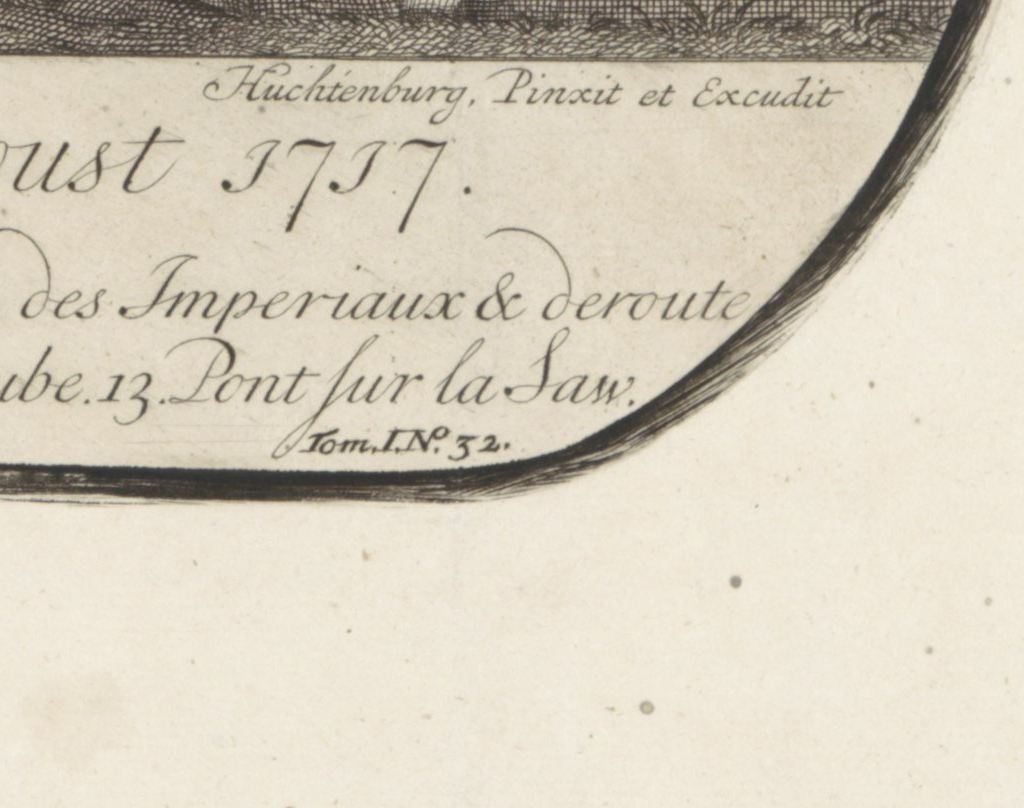 Huchtenburg, Pinxit et Excudit
oust 1717.
des Imperiaux & deroute
ube. 13. Pont sur la Saw.
Tom. I. No. 32.